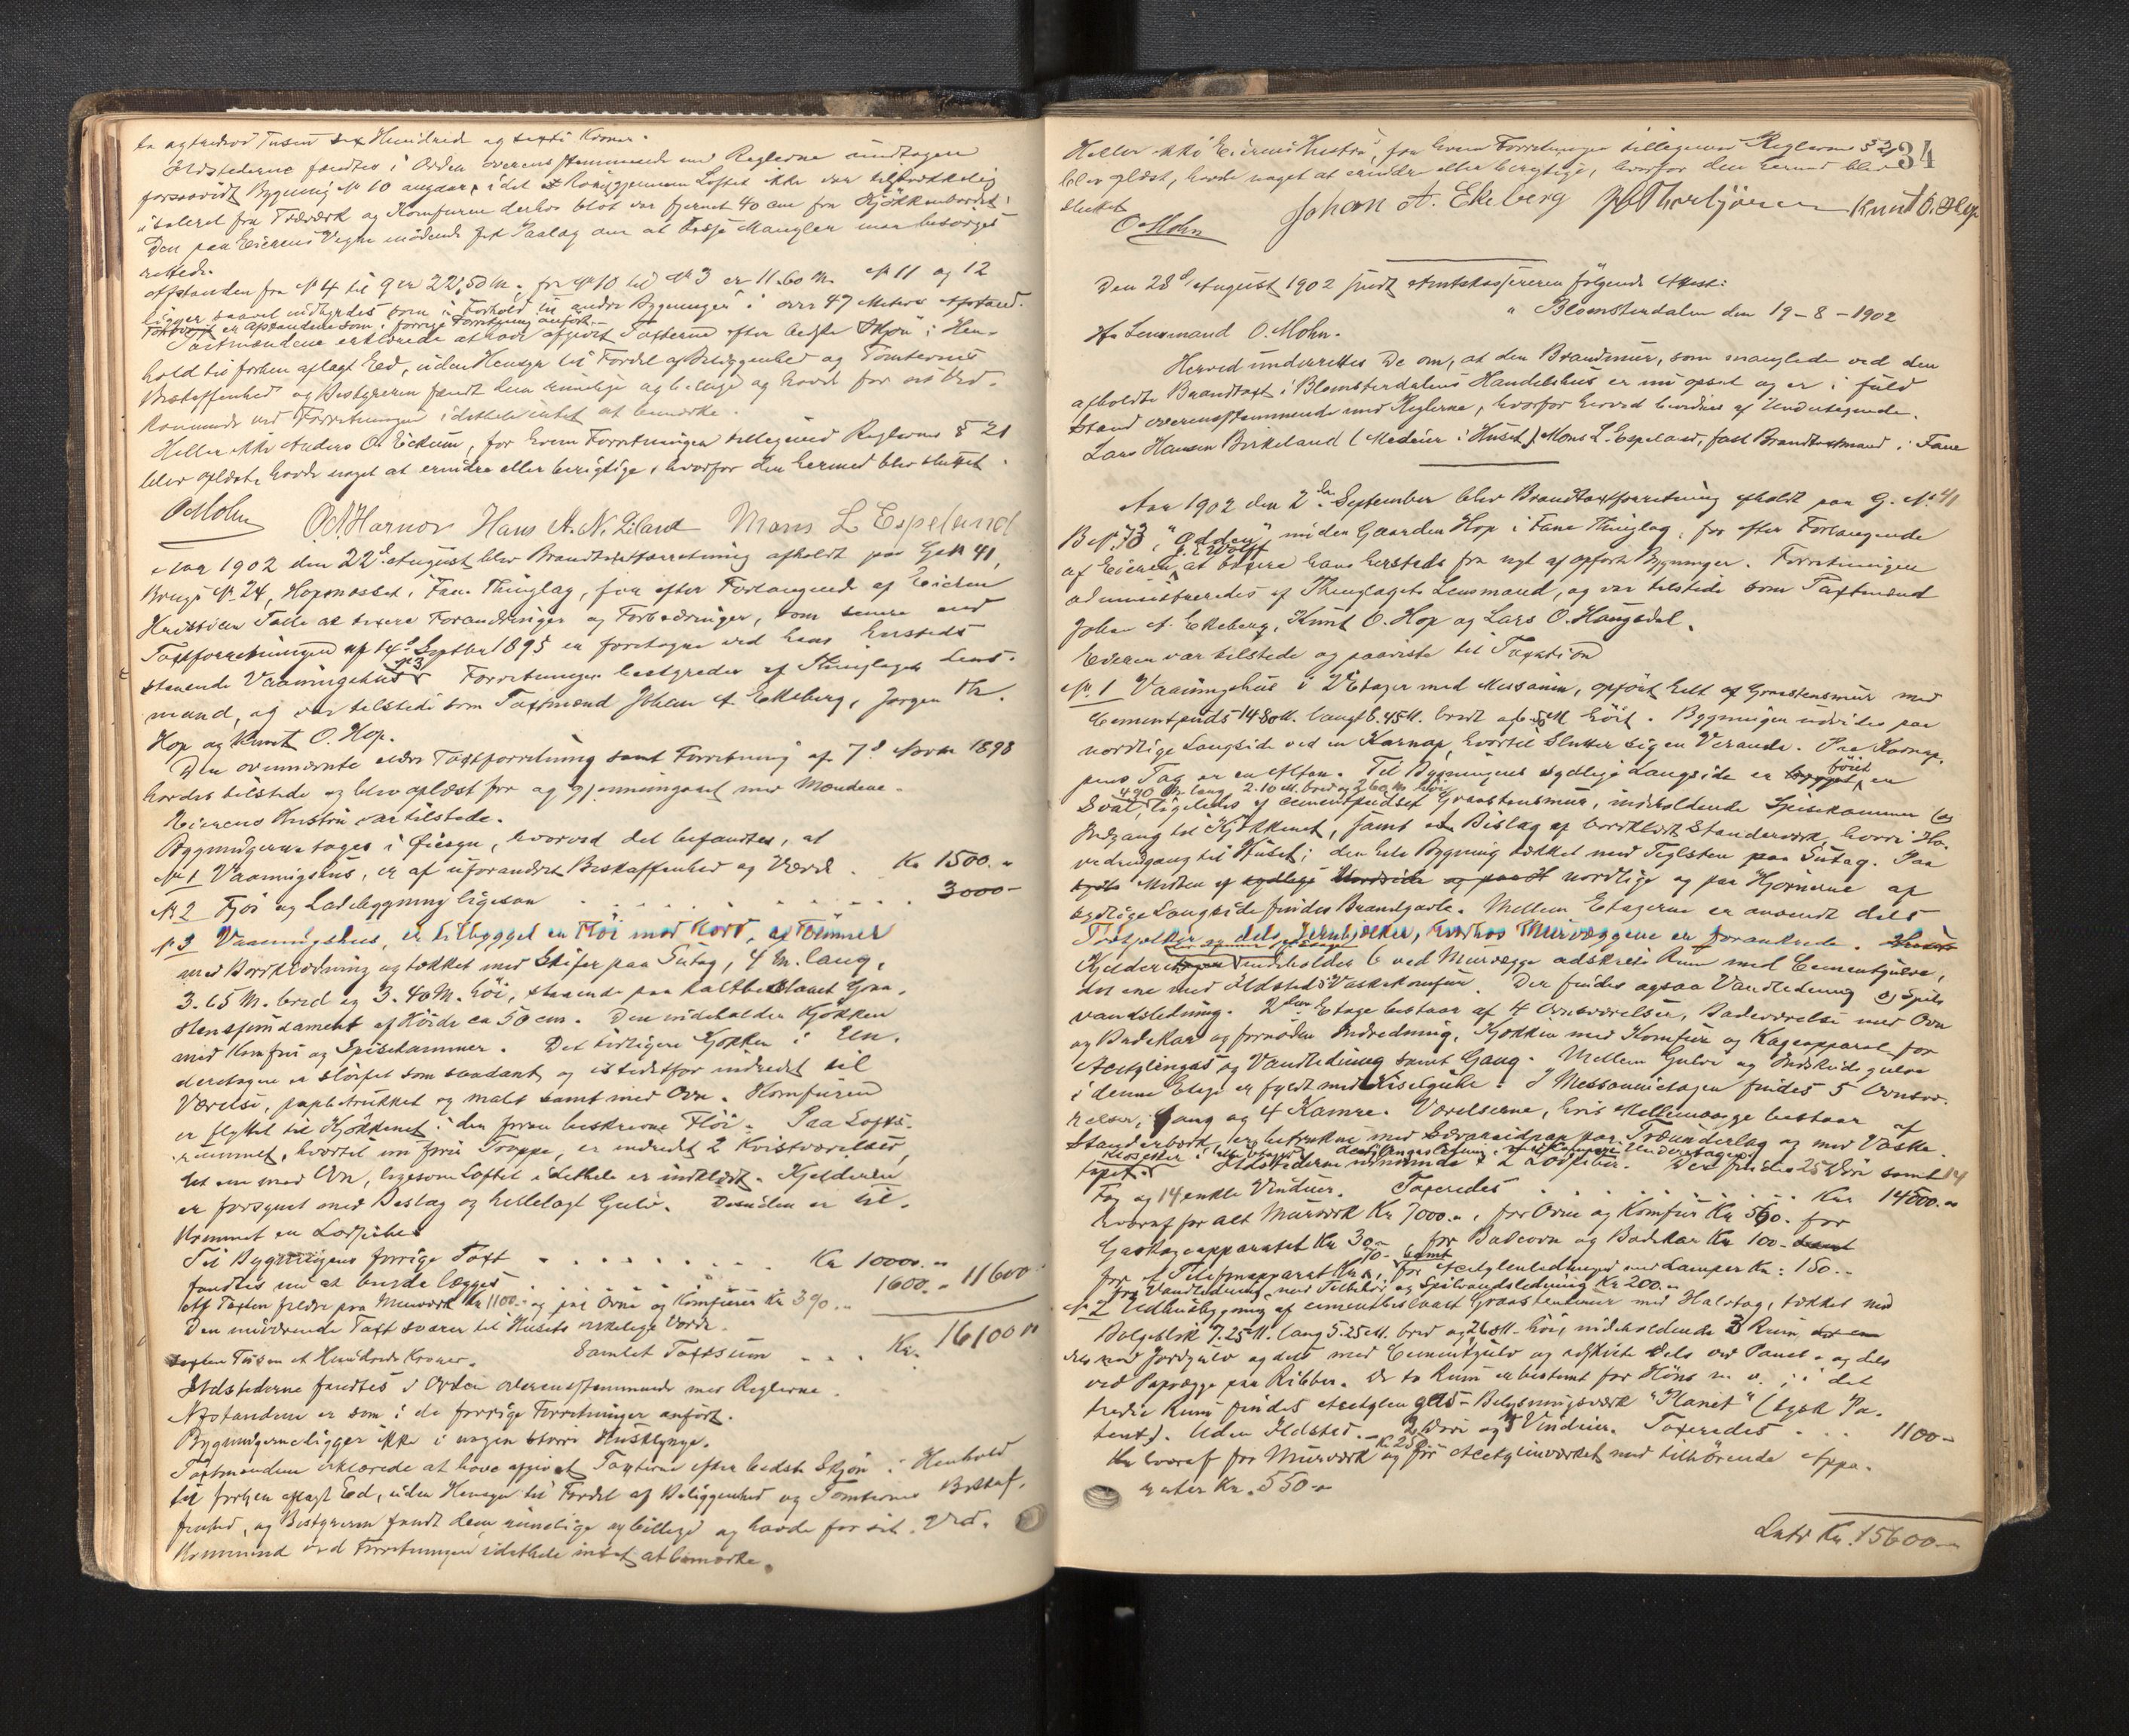 ta og tredive Tusen sex Hundrede og sexti Kroner.
Ildstederne fandtes i Orden overensstemmende med Reglerne undtagen
forsaavidt Bygning No 10 angaar, idet et Rør gjennem Loftet ikke var tilstrækkelig
isoleret fra Træværk og Komfuren derhos blot var fjernet 40 cm fra Kjøkkenbordet.
Den paa Eierens Vegne mødende fik Paalæg om at disse Mangler maa besørges
rettede.
Afstanden fra No 4 til 9 er 22,50 M., fra No 10 til No 3 er 11.60 M. No 11 og 12
ligger saavel indbyrdes som i Forhold til andre Bygninger i over 47 Meters Afstand.
er Afstandene som i forrige Forretning anført.
Taxtmændene erklærede at have afgivet Taxterne efter bedste Skjøn i Hen-
hold til forhen aflagt Ed, uden Hensyn til Fordel af Beliggenhed og Tomternes
Beskaffenhed og Bestyreren fandt dem rimelige og billige og havde for sit Ved-
kommende ved Forretningen idethele intet at bemærke.
Heller ikke Anders O. Eikum, for hvem Forretningen tillegemed Reglernes § 21
blev oplæst, havde noget at erindre eller berigtige, hvorfor den hermed blev sluttet.
O. Mohn O. A. Harnov Hans A. N. Liland Mons L Espeland
Aar 1902 den 22de August blev Brandtaxtforretning afholdt paa G. No 41,
Brugs No 24, Hopsnesset i Fane Thinglag, for efter Forlangende af Eieren
Kristian Tolle at taxere Forandringer og Forbedringer, som senere end
Taxtforretningen af 14de Septbr 1895 er foretagne ved hans hersteds
staaende Vaaningshus No 3. Forretningen bestyredes af Thinglagets Lens-
mand, og var tilstede som Taxtmænd Johan A. Ekeberg, Jørgen Th.
Hop og Knut O. Hop.
Den ovennævnte ældre Taxtforretning samt Forretning af 7de Novbr 1898
havdes tilstede og blev oplæst for og gjennemgaaet med Mændene.
Eierens Hustru var tilstede.
Bygningerne toges i Øiesyn, hvorved det befandtes, at
No 1 Vaaningshus, er af uforandret Beskaffenhed og Værd . Kr 1500.-
No 2 Fjøs og Ladebygning ligesaa . . . . . . . . . 3000-
No 3 Vaaningshus, er tilbygget en Fløi mod Nord, af Tømmer
med Bordklædning og tækket med Skifer paa Sutag, 4 M. lang,
3.65 M. bred og 3.40 M. høi, staaende paa kalkbeslaaet Graa-
stensfundament af Høide ca 50 cm. Den indeholder Kjøkken
med Komfur og Spisekammer. Det tidligere Kjøkken i Un-
deretagen er sløifet som saadant, og istedetfor indredet til
Værelse, papbetrukket og malt samt med Ovn. Komfuren
er flyttet til Kjøkkenet i den foran beskrevne Fløi. Paa Lofts-
rummet, hvortil nu fører Trappe, er indredet 2 Kvistværelser,
det ene med Ovn, ligesom Loftet idethele er indklædt. Kjelderen
er forsynet med Beslag og hellelagt Gulv. Desuden er til-
kommet en Lodpibe.
Til Bygningens forrige Taxt . . . . . . . . Kr 10000.-
fandtes nu at burde lægges . . . . . 1600.- 11600-
Af Taxten falder paa Murværk Kr 1100.- og paa Ovne og Komfurer Kr 390.-
Den nuværende Taxt svarer til Husets virkelige Værdi.
Samlet Taxtsum . . . Kr. 16100.-
Sexten Tusen et Hundrede Kroner.
Ildstederne fandtes i Orden overensstemmende med Reglerne.
Afstandene er som i de forrige Forretninger anført.
Bygningerne ligger ikke i nogen større Husklynge.
Taxtmændene erklærede at have afgivet Taxterne efter bedste Skjøn i Henhold
til forhen aflagt Ed, uden Hensyn til Fordel af Beliggenhed og Tomternes Beskaf-
fenhed, og Bestyreren fandt dem rimelige og billige og havde for sit Ved-
kommende ved Forretningen idethele intet at bemærke.
34
Heller ikke Eierens Hustru, for hvem Forretningen tillegemed Reglernes § 21
blev oplæst, havde noget at erindre eller berigtige, hvorfor den hermed blev
sluttet.
O. Mohn Johan A. Ekeberg Knut O. Hop
Den 28de August 1902 sendt Amtskassereren følgende Attest:
" Blomsterdalen den 19-8-1902
Hr Lensmand O. Mohn.
Herved underrettes De om, at den Brandmur, som manglede ved den
afholdte Brandtaxt i Blomsterdalens Handelshus er nu opsat og er i fuld
Stand overensstemmende med Reglerne, hvorfor herved bevidnes af Undertegnede.
Lars Hansen Birkeland (Medeier i Huset) Mons L. Espeland, fast Brandtaxtmand i Fane
Aar 1902 den 2den September blev Brandtaxtforretning afholdt paa G. No. 41
B. No. 73, "Odden", under Gaarden Hop i Fane Thinglag, for efter Forlangende
af Eieren J. E. Wolff at taxere hans hersteds fra nyt af opførte Bygninger. Forretningen
administreredes af Thinglagets Lensmand, og var tilstede som Taxtmænd
Johan A. Ekeberg, Knut O. Hop og Lars O. Haugsdal.
Eieren var tilstede og paaviste til Taxation
No. 1 Vaaningshus i 2 Etager med Messanin, opført helt af Graastensmur med
Cementpuds 14.80 M. langt 8.45 M. bredt og 6. M høit. Bygningen udvides paa
nordlige Langside ved en Karnap, hvortil slutter sig en Veranda. Paa Karnap-
pens Tag er en Altan. Til Bygningens sydlige Langside er føiet en
Sval, 4.90 M. lang, 2.10 M. bred og 2.60 M. høi ligeledes af cementpudset Graastensmur, indeholdende Spisekammer og
Indgang til Kjøkkenet, samt en Bislag af bordklædt Standerværk, hvori Ho-
vedindgang til Huset; den hele Bygning tækket med Teglsten paa Sutag. Paa
Midten af nordlige og paa Hjørnerne af
sydlige Langside findes Brandgavle. Mellem Etagerne er anvendt dels
Træbjelker og dels Jernbjelker, hvorhos Murvæggene er forankrede.
Kjelderetagen indeholder 6 ved Murvægge adskilte Rum med Cementgulve,
det ene med Ildsted & Vaskekomfur. Der findes ogsaa Vandledning og Spild-
vandsledning. 2den Etage bestaar af 4 Ovnsværelser, Badeværelse med Ovn
og Badekar og fornøden Indredning, Kjøkken med Komfur og Kogeapparat for
Acetylengas og Vandledning samt Gang. Mellem Gulve og Indskudsgulve
i denne Etage er fyldt med Kiselguhr. I Messaninetagen findes 5 Ovnsvæ-
relser, Gang og 4 Kamre. Værelserne, hvis Mellemvægge bestaar af
Standerbord, er betrukne med paa Træunderlag og med Vaske-
tapet. Ildstederne udmunde i 2 Lodpiber. Der findes 25 Døre samt 14
Fag og 14 enkle Vinduer. Taxeredes . . . . . . Kr. 14500.-
hvoraf for alt Murværk Kr 7000.-, for Ovne og Komfur Kr 560. for
Gaskogeapparatet Kr 30.-, for Badeovn og Badekar Kr 100-
for et Telefonapparat Kr. 70.- samt for Acetylenledningen med Lamper Kr: 150.-
for Vandledning med Tilbehør og Spildvandsledning Kr 200.-
No 2 Udhusbygning af cementbeslaaet Graastensmur med Halvtag, tækket med
Bølgeblik 7.25 M. lang 5.25 M. bred og 2.60 M. høi, indeholdende 3 Rum,
dels med Jordgulv og dels med Cementgulv og adskilte dels ved Panel- og dels
ved Papvægge paa Ribber. De to Rum er bestemt for Høns m. v.; i det
tredie Rum findes et Acetylengas-Belysningsværk "Planet" (tysk Pa-
tent). Uden Ildsted. 2 Døre og 4 Vinduer. Taxeredes . . . 1100-
hvoraf for Murværk Kr 250- og for Acetylenværket med tilhørende Appa-
rater Kr. 550-
Lats Kr. 15600.-